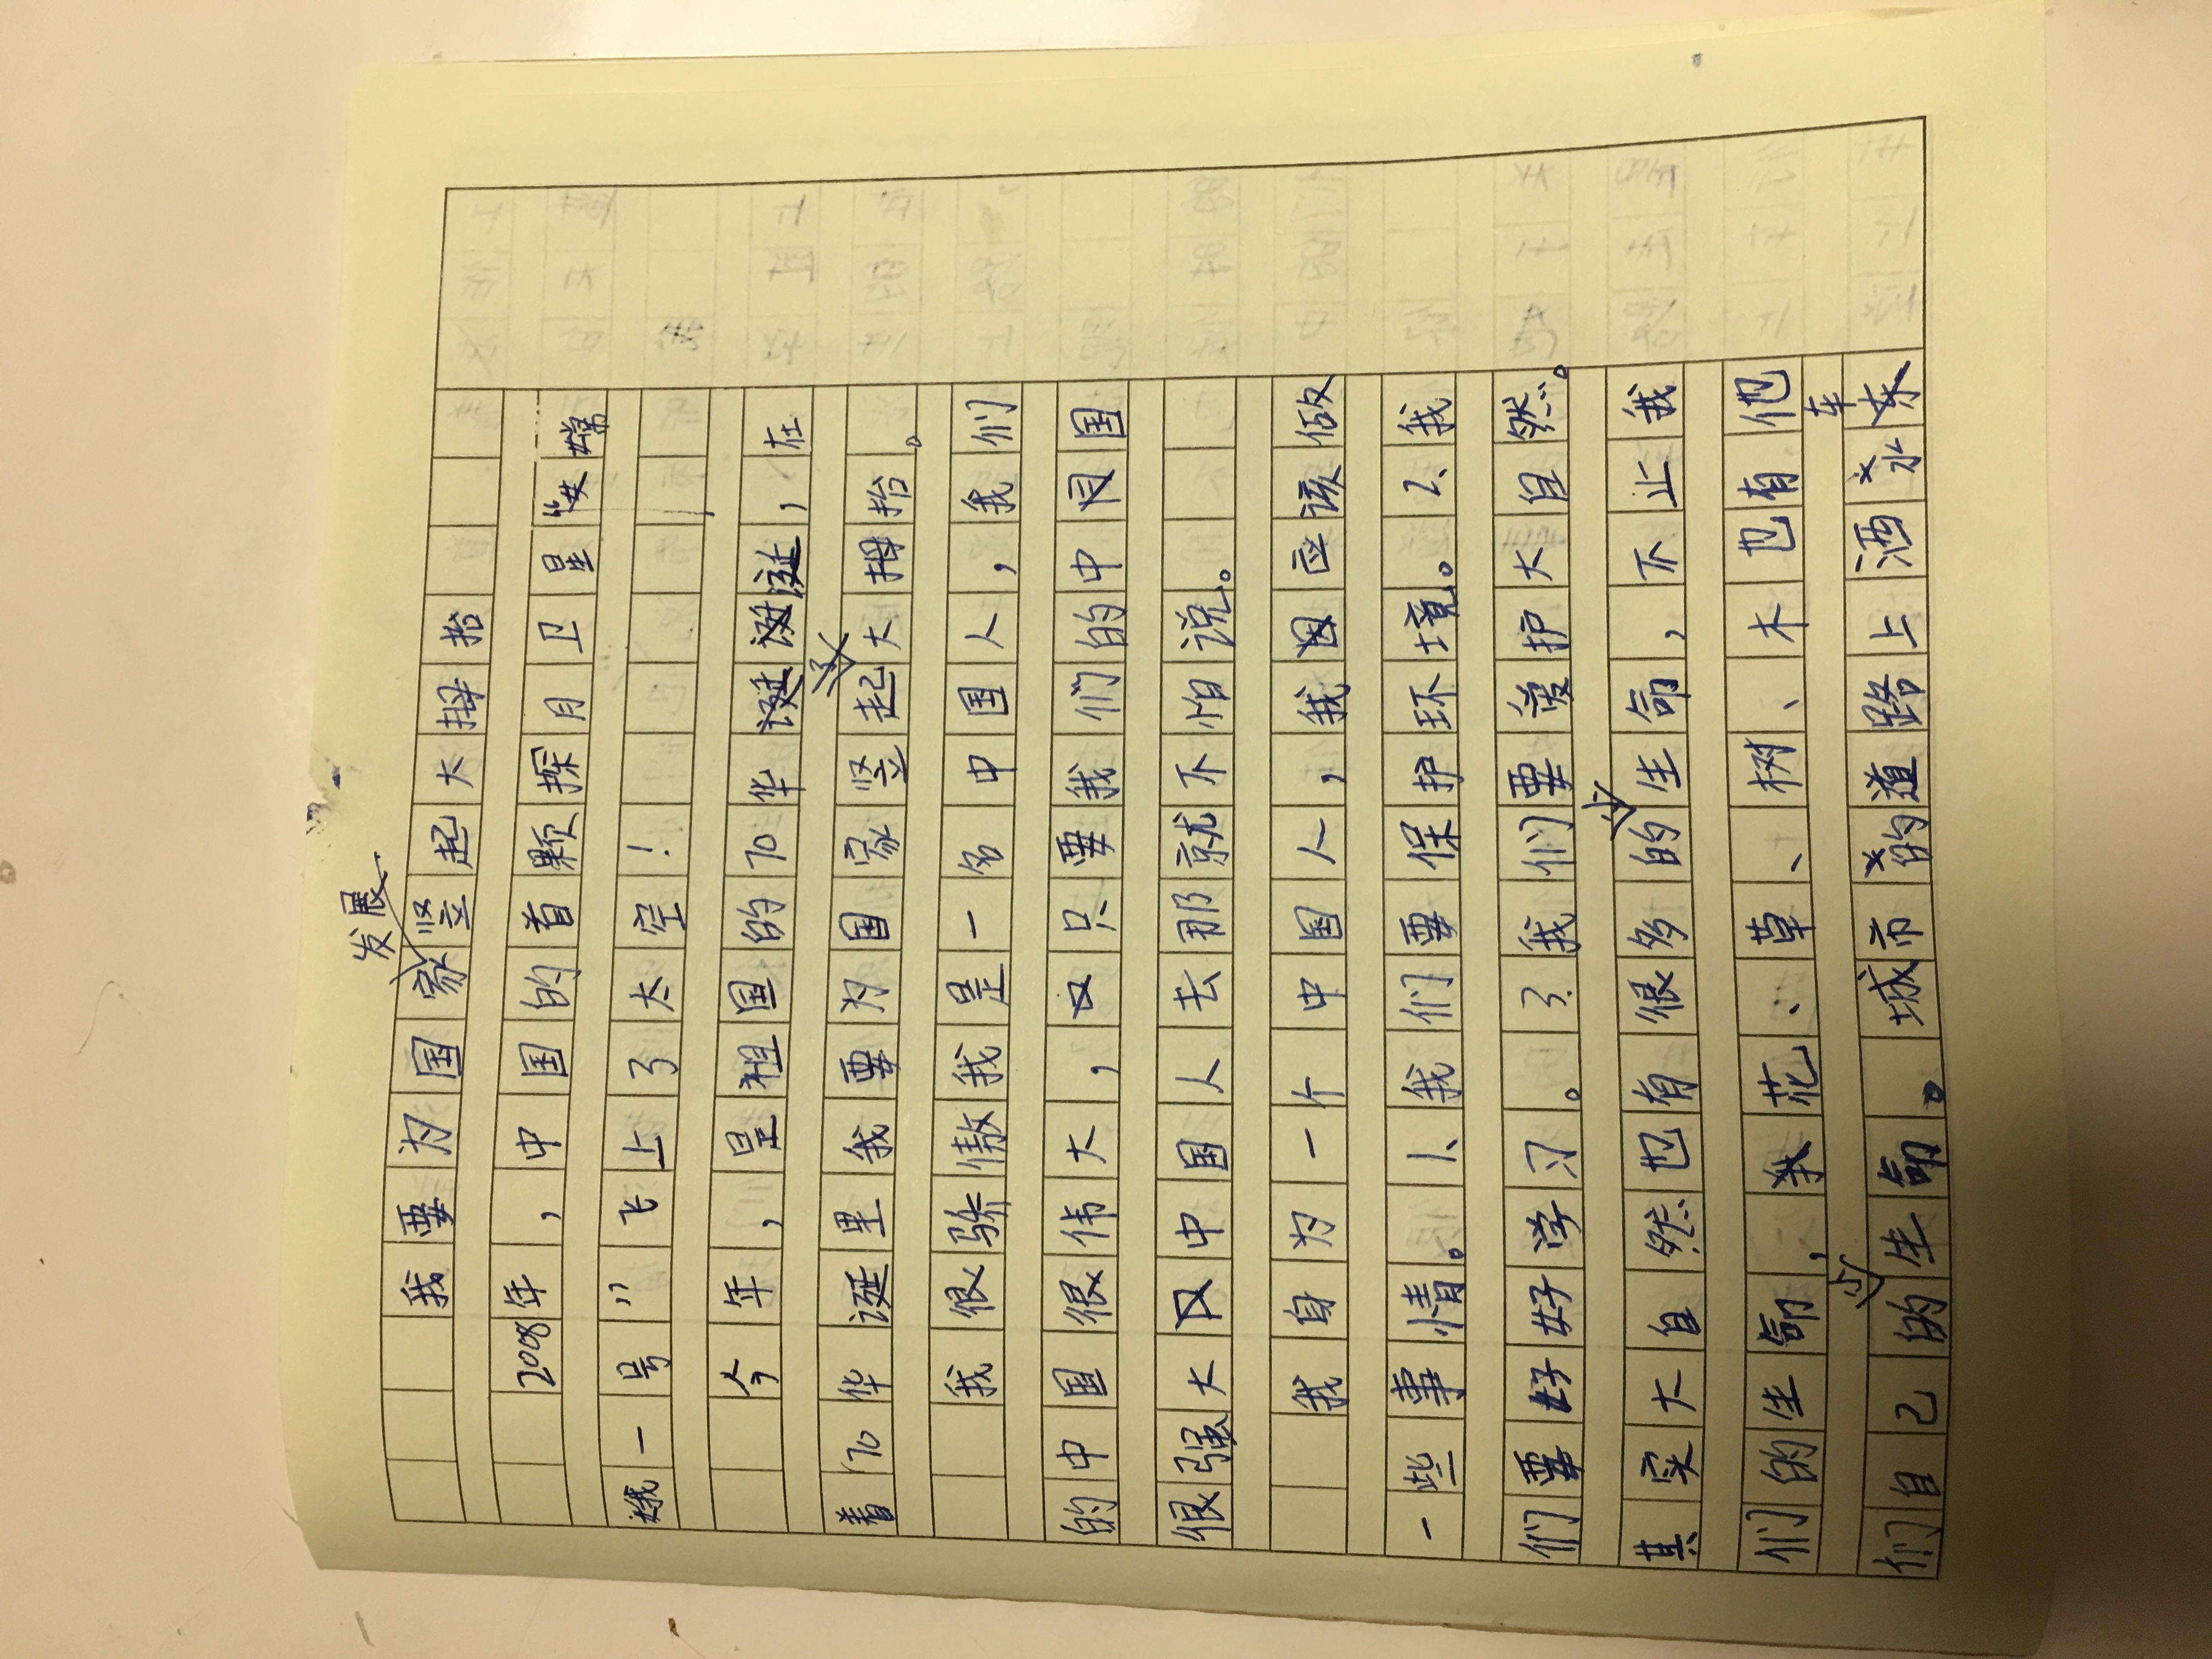 我要为国家发展竖起大拇指
2008年，中国的首颗探月卫星“嫦
娥一号”飞上了太空！
今年，是祖国的70华诞，在
着70华诞里我要为国家竖起大拇指。
我很骄傲我是一名中国人，我们
的中国很伟大，只要我们的中国
很强大中国人去那就不怕说。
我身为一个中国人，我应该做
一些事情。1、我们要保护环境。2、我
们要好好学习。3.我们要爱护大自然。
其实大自然也有很多的少生命，不止我
们的生命，花、草、树、木也有他
们自己的少生命。城市的道路上洒水车